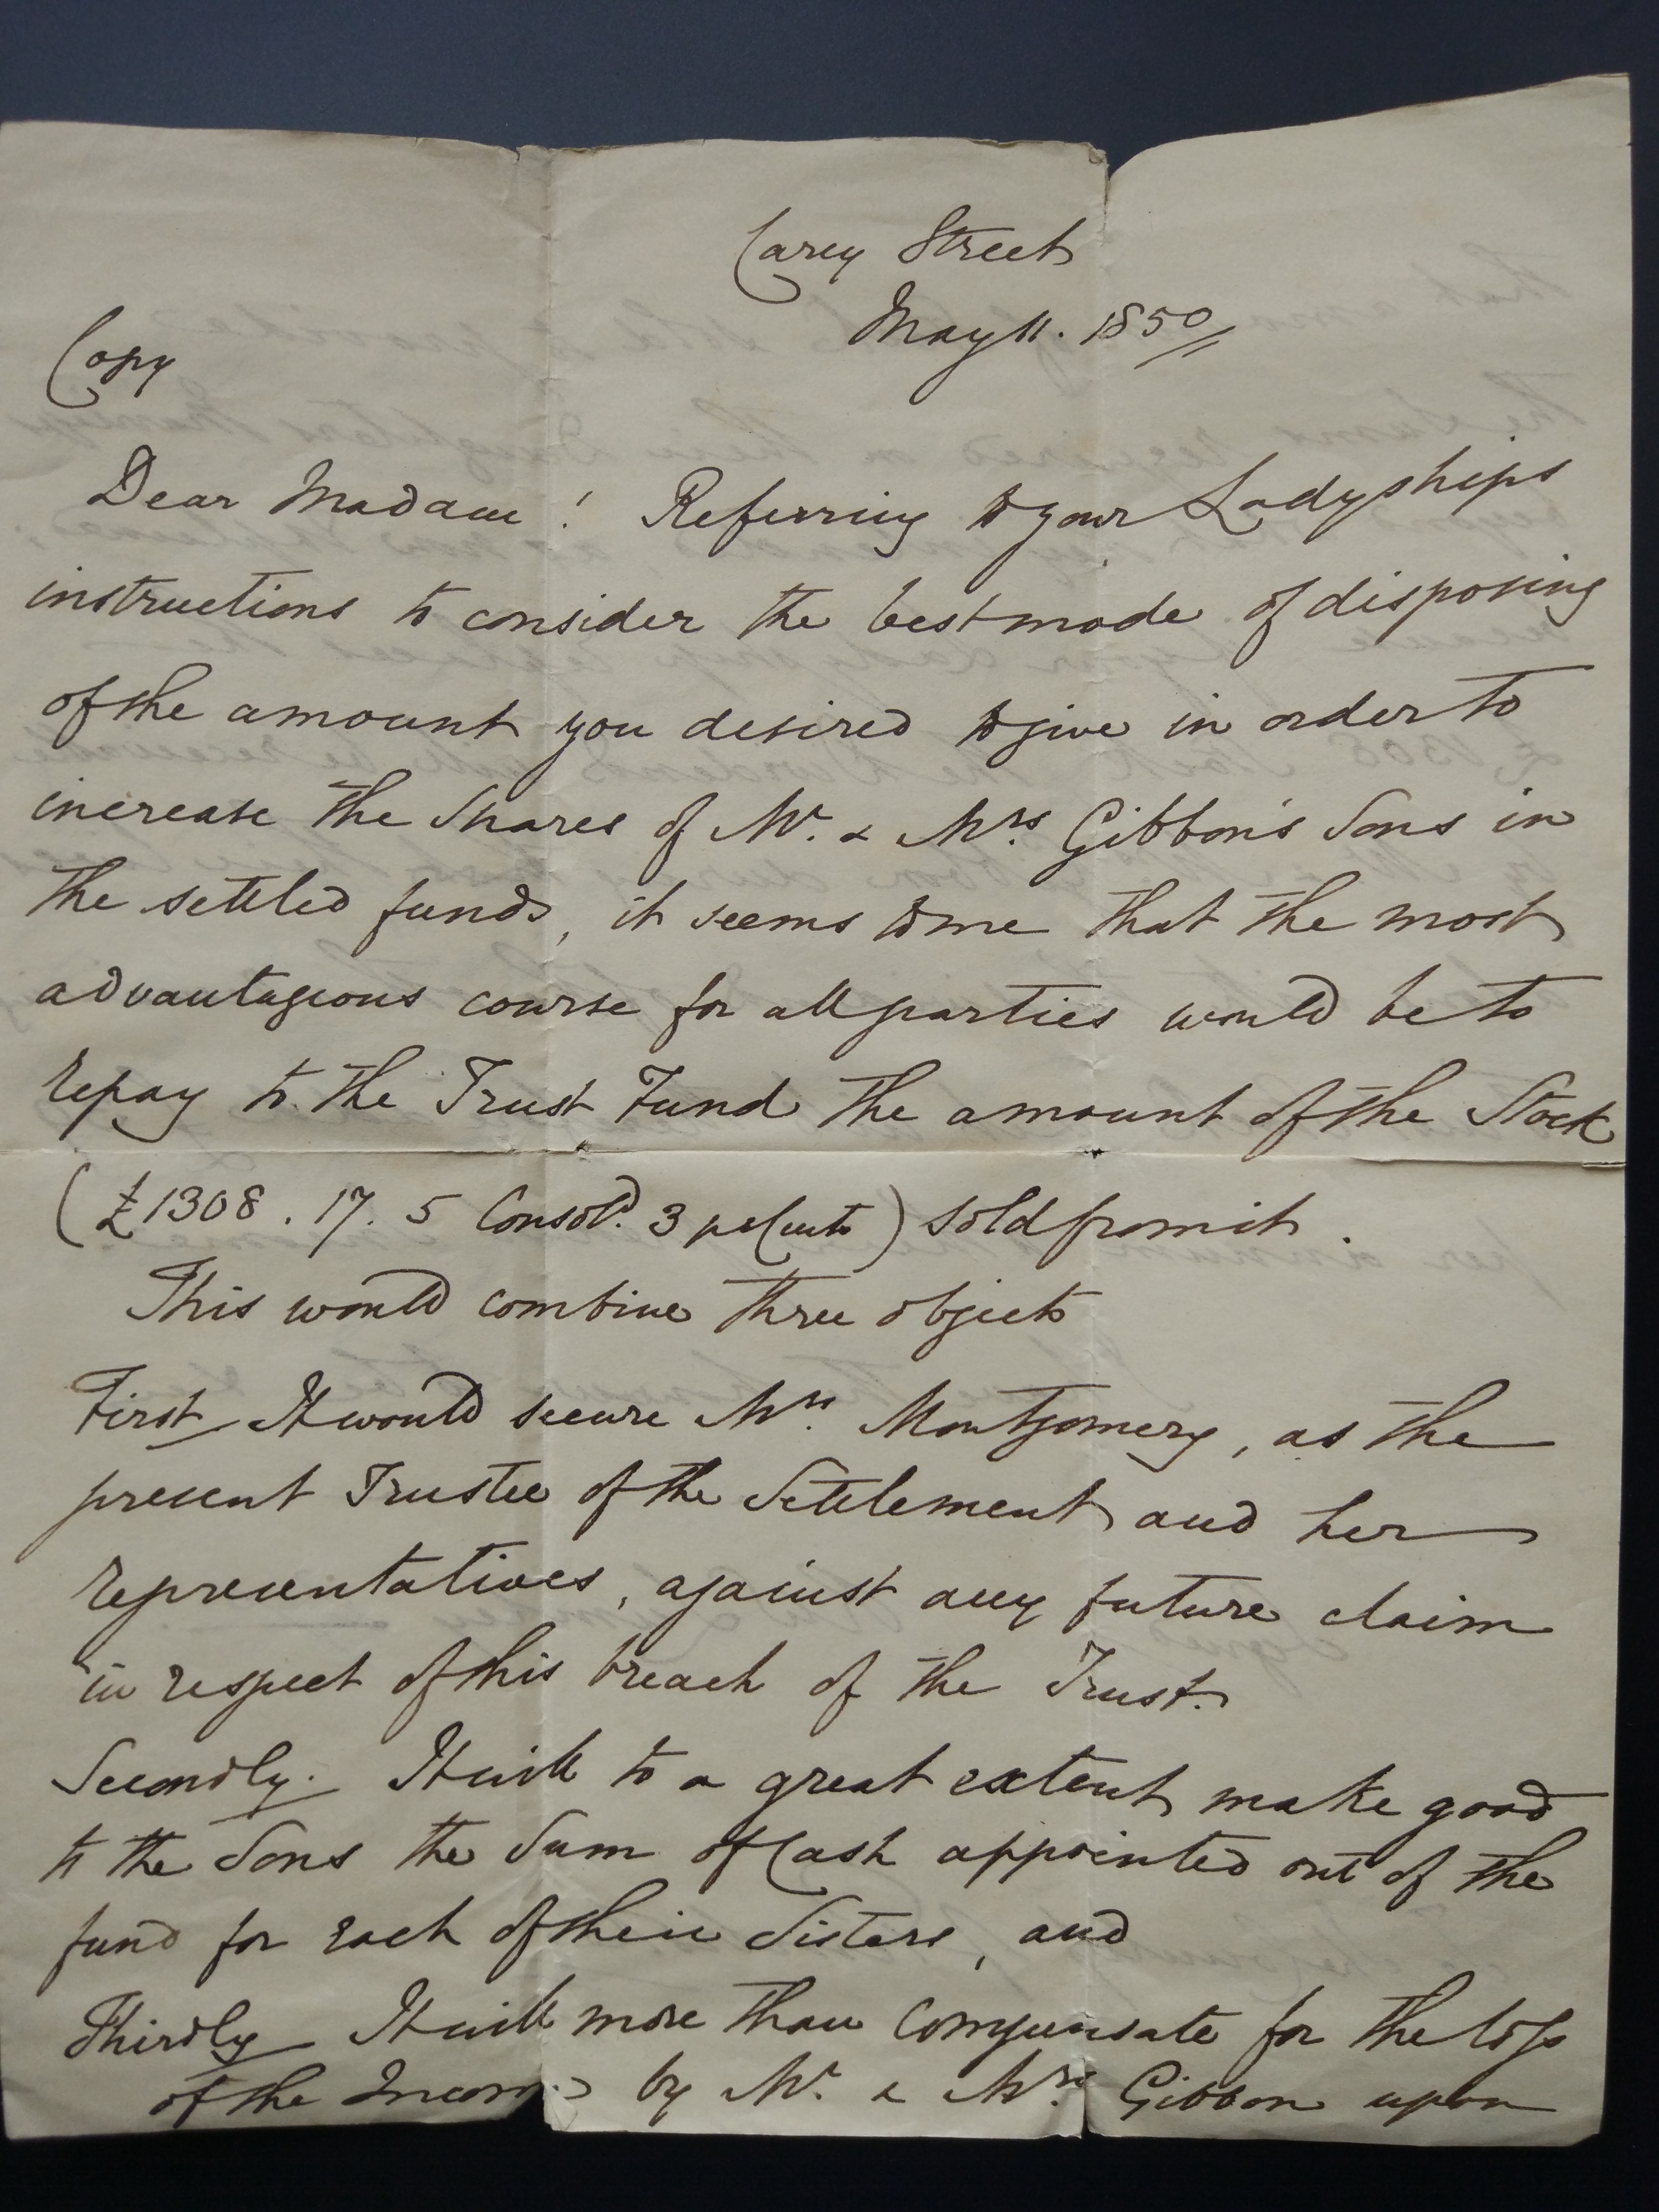 Carey Street
May 11. 1850
Copy
Dear Madam! Referring to your Ladyships
instructions to consider the best mode of disposing
of the amount you desired to give in order to
increase the Shares of Mr. & Mrs. Gibbon's Sons in
the settled funds, it seems to me that the most
advantageous course for all parties would be to
repay to the Trust Fund the amount of the Stock
(£1308. 17. 5 Consold. 3 per Cents) sold from it.
This would combine three objects
First It would secure Mrs. Montgomery, as the
present Trustee of the Settlement and her
representatives, against any future claim
in respect of this breach of the Trust.
Secondly. It will to a great extent make good
to the Sons the Sum of Cash appointed out of the
fund for each of their Sisters, and
Thirdly It will more than compensate for the loss
of the Income by Mr. & Mrs. Gibbon upon